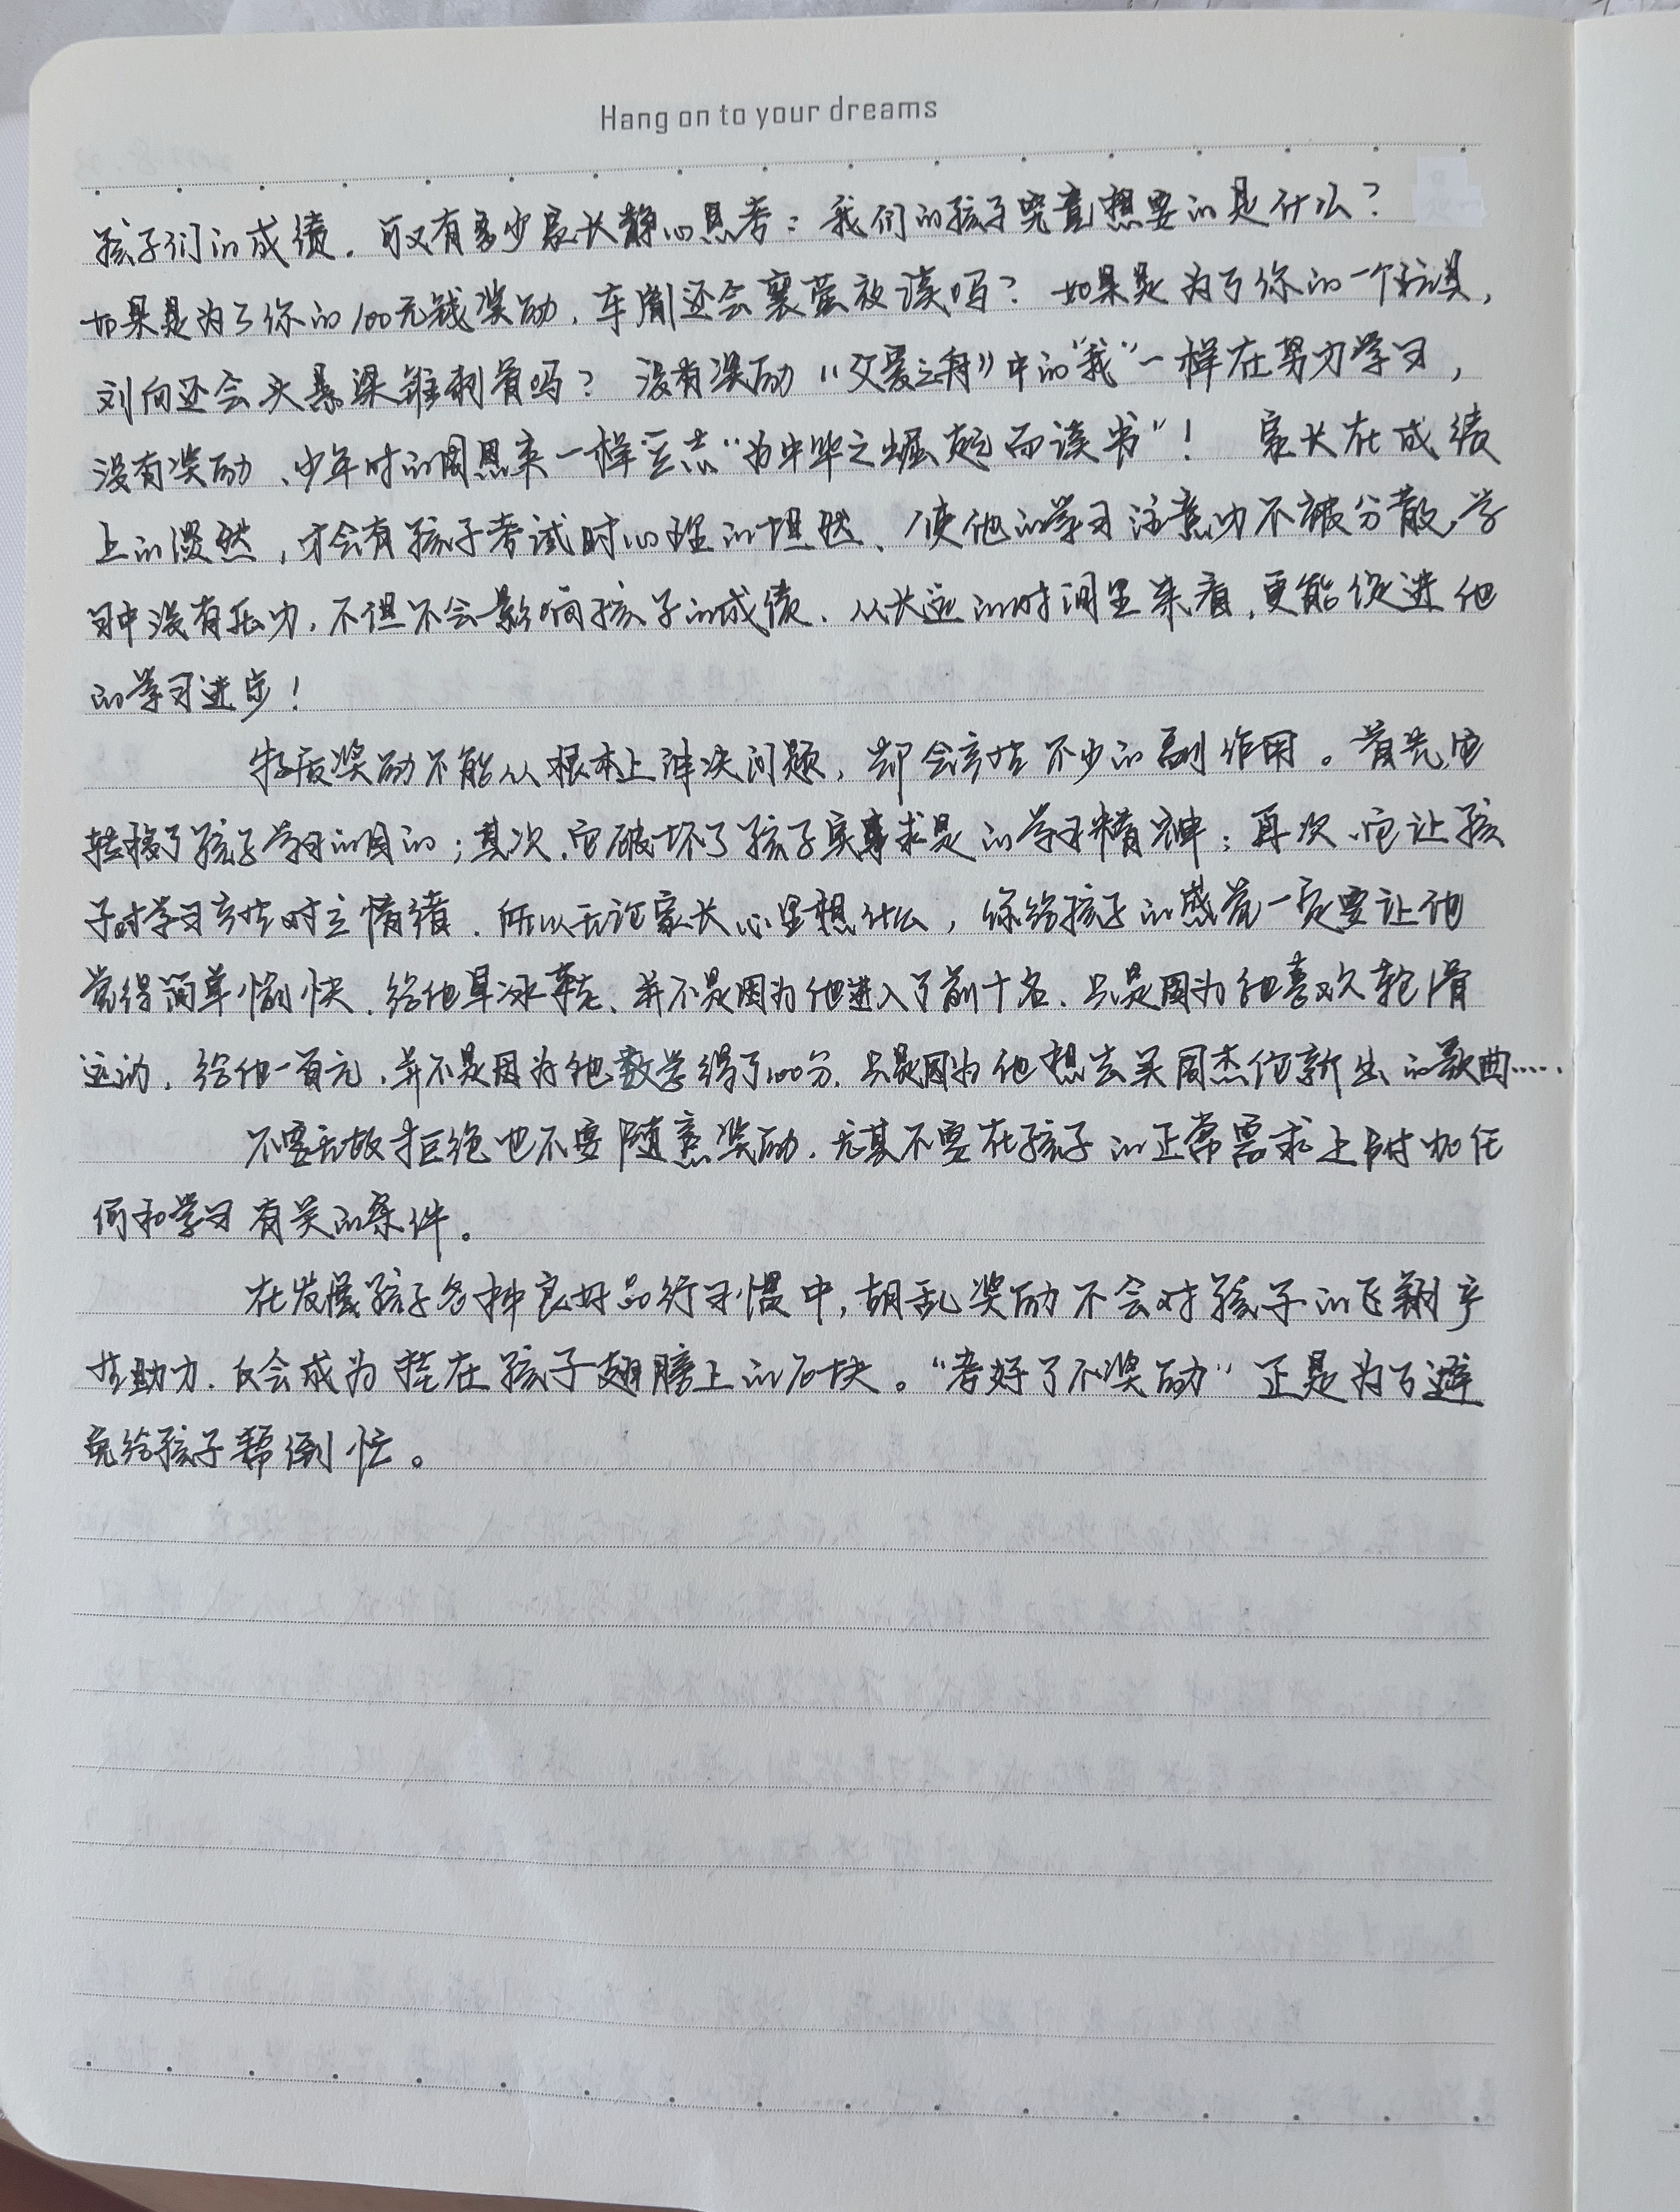 Hang on to your dreams
孩子们的成绩。可又有多少家长静心思考：我们的孩子究竟想要的是什么？
如果是为了你的100元钱奖励，车胤还会囊萤夜读吗？如果是为了你的一个玩具，
刘向还会头悬梁锥刺骨吗？没有奖励《父爱之舟》中的“我”一样在努力学习，
没有奖励、少年时的周恩来一样立志“为中华之崛起而读书”！家长在成绩
上的淡然，才会有孩子考试时心理的坦然、使他的学习注意力不被分散，学
习中没有压力，不但不会影响孩子的成绩、从长远的时间里来看，更能促进他
的学习进步！
物质奖励不能从根本上解决问题，却会产生不少的副作用。首先它
转移了孩子学习的目的；其次，它破坏了孩子实事求是的学习精神；再次、它让孩
子对学习产生对立情绪．所以无论家长心里想什么，你给孩子的感觉一定要让他
觉得简单愉快．给他旱冰鞋、并不是因为他进入了前十名、只是因为他喜欢轮滑
运动．给他一百元，并不是因为他数学得了100分．只是因为他想去买周杰伦新出的歌曲……
不要无故拒绝也不要随意奖励．尤其不要在孩子的正常需求上附加任
何和学习有关的条件。
在发展孩子各种良好品行习惯中，胡乱奖励不会对孩子的飞翔产
生助力．反会成为挂在孩子翅膀上的石块。“考好了不奖励”正是为了避
免给孩子帮倒忙。